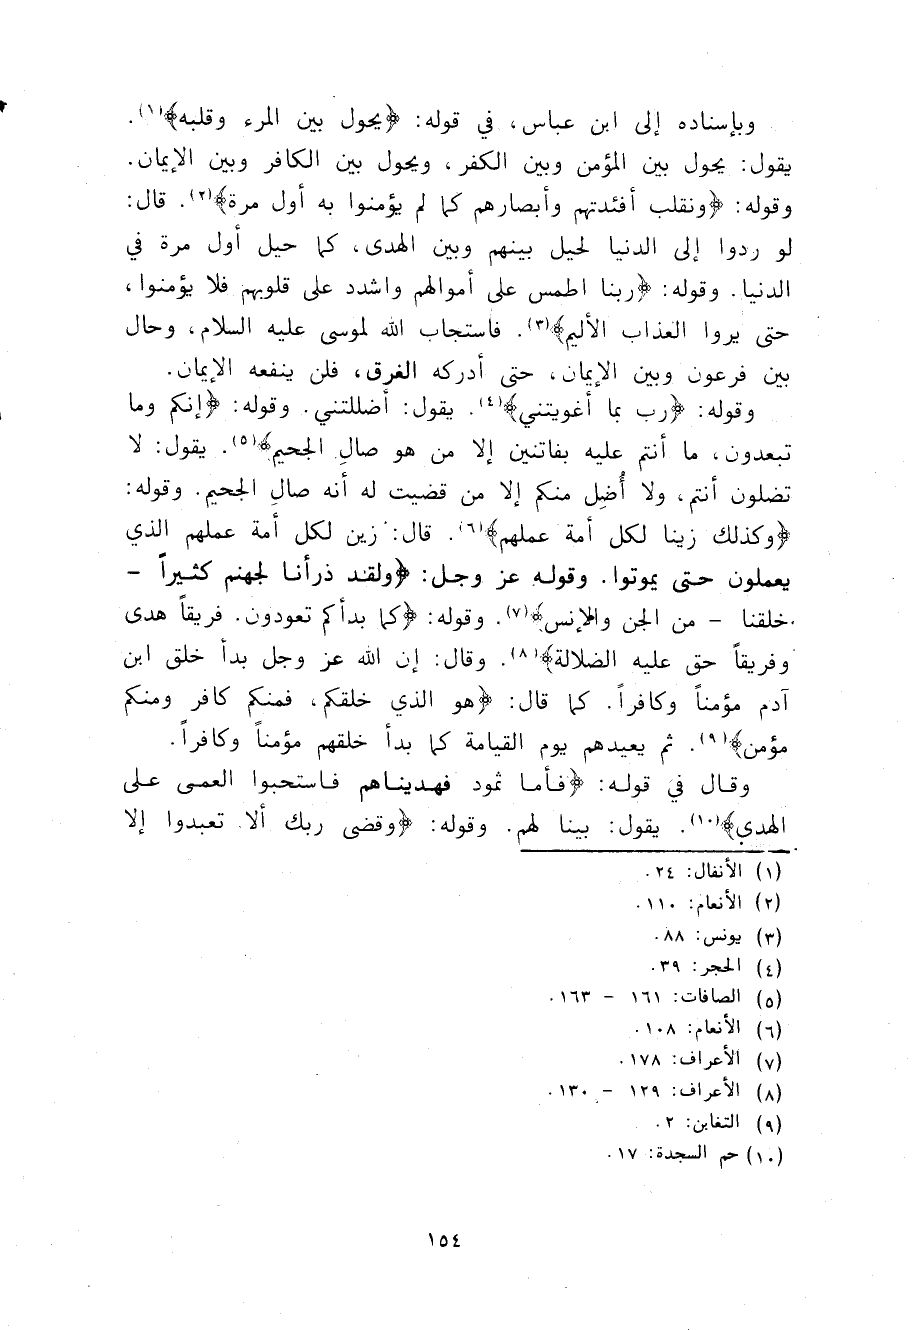 وبإسناده إلى ابن عباس، في قوله: ﴿يحول بين المرء وقلبه﴾(١).
يقول: يحول بين المؤمن وبين الكفر، ويحول بين الكافر وبين الإيمان.
وقوله: ﴿ونقلب أفئدتهم وأبصارهم كما لم يؤمنوا به أول مرة﴾(٢). قال:
لو ردوا إلى الدنيا لحيل بينهم وبين الهدى، كما حيل أول مرة في
الدنيا. وقوله: ﴿ربنا اطمس على أموالهم واشدد على قلوبهم فلا يؤمنوا،
حتى يروا العذاب الأليم﴾(٣). فاستجاب الله لموسى عليه السلام، وحال
بين فرعون وبين الإيمان، حتى أدركه الغرق، فلن ينفعه الإيمان.
وقوله: ﴿رب بما أغويتني﴾(٤). يقول: أضللتني. وقوله: ﴿إنكم وما
تبعدون، ما أنتم عليه بفاتنين إلا من هو صالِ الجحيم﴾(٥). يقول: لا
تضلون أنتم، ولا أُضِل منكم إلا من قضيت له أنه صالِ الجحيم. وقوله:
﴿وكذلك زينا لكل أمة عملهم﴾(٦). قال: زين لكل أمة عملهم الذي
يعملون حتى يموتوا. وقوله عز وجل: ﴿ولقد ذرأنا لجهنم كثيراً –
خلقنا – من الجن والإنس﴾(٧). وقوله: ﴿كما بدأكم تعودون. فريقاً هدى
وفريقاً حق عليه الضلالة﴾(٨). وقال: إن الله عز وجل بدأ خلق ابن
آدم مؤمناً وكافراً. كما قال: ﴿هو الذي خلقكم، فمنكم كافر ومنكم
مؤمن﴾(٩). ثم يعيدهم يوم القيامة كما بدأ خلقهم مؤمناً وكافراً.
وقال في قوله: ﴿فأما ثمود فهديناهم فاستحبوا العمى على
الهدي﴾(١٠). يقول: بينا لهم. وقوله: ﴿وقضى ربك ألا تعبدوا إلا
(١) الأنفال: ٢٤.
(٢) الأنعام: ١١٠.
(٣) يونس: ٨٨.
(٤) الحجر: ٣٩.
(٥) الصافات: ١٦١ – ١٦٣.
(٦) الأنعام: ١٠٨.
(٧) الأعراف: ١٧٨.
(٨) الأعراف: ١٢٩ – ١٣٠.
(٩) التغابن: ٢.
(١٠) حم السجدة: ١٧.
١٥٤